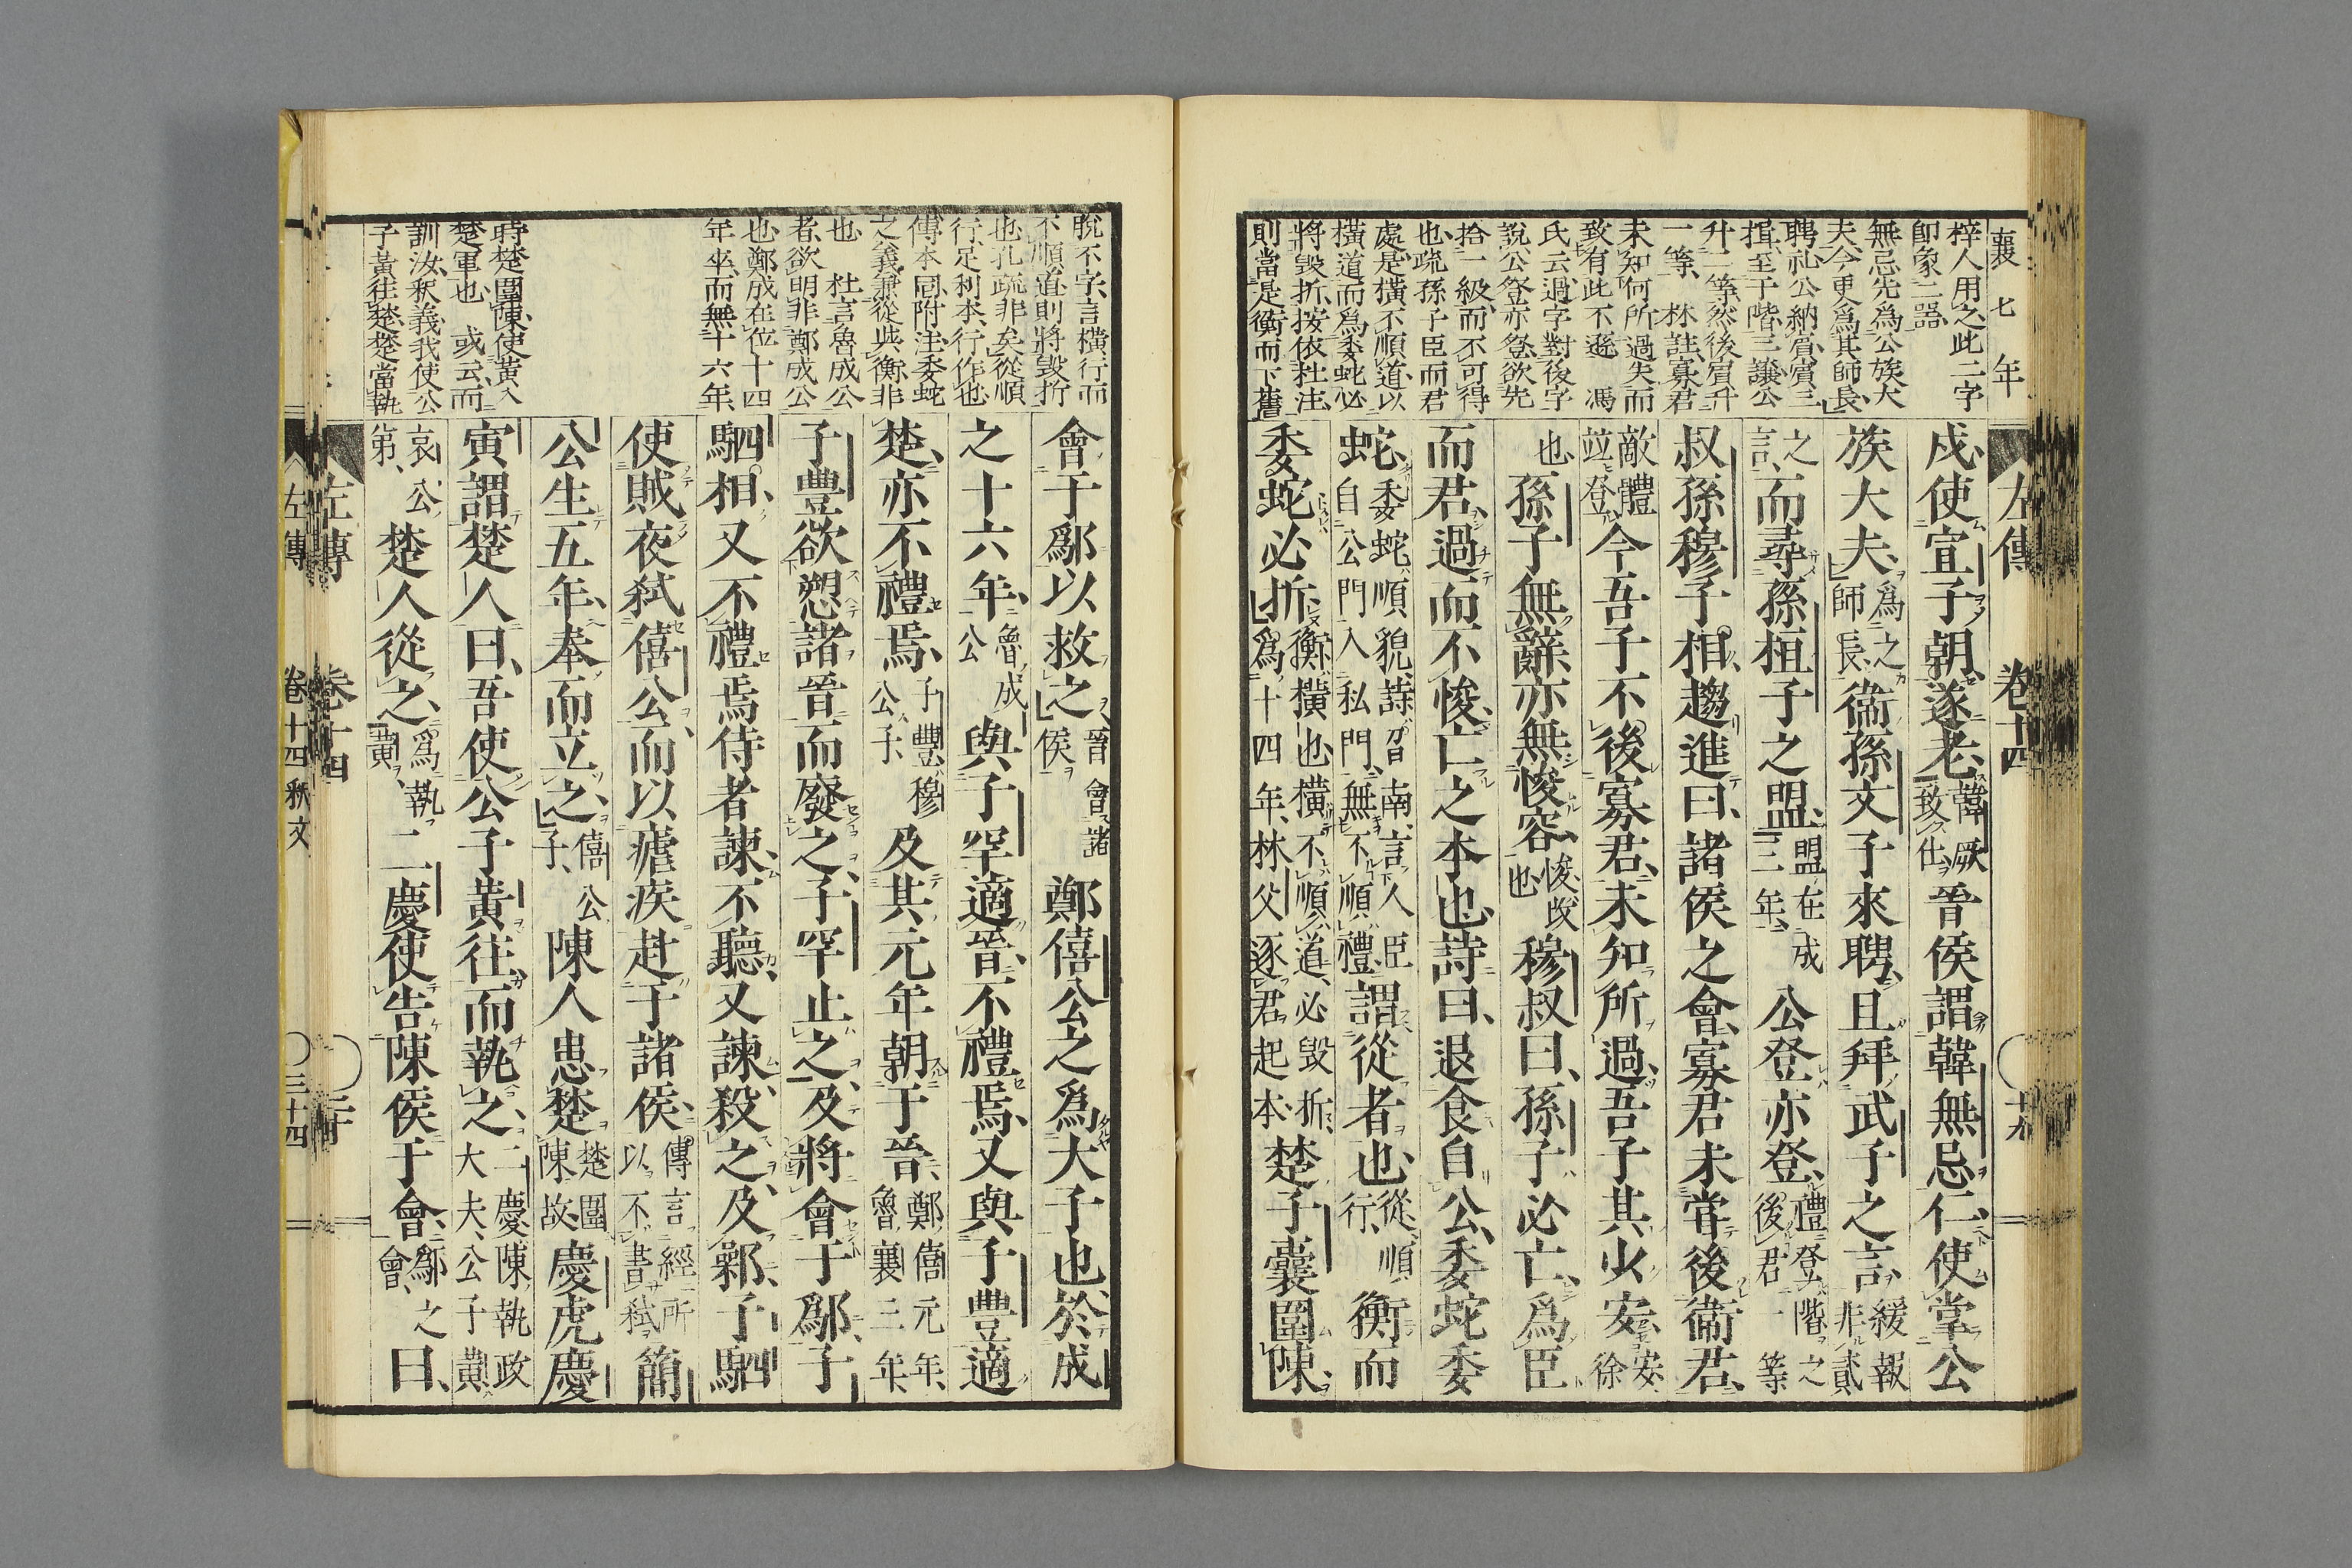 襄七年
左傳 卷十四 十九
梓人用之此二字
卽象二器
無忌先爲公族大
夫今更爲其師長
聘礼公納賓賓三
揖至于階三讓公
升二等然後賓升
一等 林註寡君
未知何所過失而
致有此不遜 馮
氏云過字對後字
說公登亦登欲先
拾一級而不可得
也疏孫子臣而君
處是橫不順道以
橫道而爲委蛇必
將毀折按依杜注
則當是衡而下舊
戍使宣子朝遂老韓厥致仕晉侯謂韓無忌仁使掌公
族大夫爲之師長衞孫文子來聘且拜武子之言緩報非貳
之言而尋孫桓子之盟盟在成三年公登亦登禮登階之後君一等
叔孫穆子相趨進曰諸侯之會寡君未嘗後衞君
敵體竝登今吾子不後寡君未知所過吾子其少安安徐
也孫子無辭亦無悛容悛改也穆叔曰孫子必亡爲臣
而君過而不悛亡之本也詩曰退食自公委蛇委
蛇委蛇順貌詩召南言人臣自公門入私門無不順禮謂從者也從順行衡而
委蛇必折衡橫也橫不順道必毀折爲十四年林父逐君起本楚子囊圍陳
脫不字言橫行而
不順道則將毀折
也孔疏非矣從順
行足利本行作也
傳本同附注委蛇
之義兼從與衡非
也 杜言魯成公
者欲明非鄭成公
也鄭成在位十四
年卒而無十六年
時楚圍陳使黃入
楚軍也 或云而
訓汝釋義我使公
子黃往楚楚當執
會于鄬以救之晉會諸侯鄭僖公之爲大子也於成
之十六年魯成公與子罕適晉不禮焉又與子豐適
楚亦不禮焉子豐穆公子及其元年朝于晉鄭僖元年魯襄三年
子豐欲愬諸晉而廢之子罕止之及將會于鄬子
駟相又不禮焉侍者諫不聽又諫殺之及鄵子駟
使賊夜弒僖公而以瘧疾赴于諸侯傳言經所以不書弒簡
公生五年奉而立之僖公子陳人患楚楚圍陳故慶虎慶
寅謂楚人曰吾使公子黃往而執之二慶陳執政大夫公子黃
哀公弟楚人從之爲執黃二慶使告陳侯于會鄬之會曰
左傳 卷十四
左傳 卷十四釈文 三十四